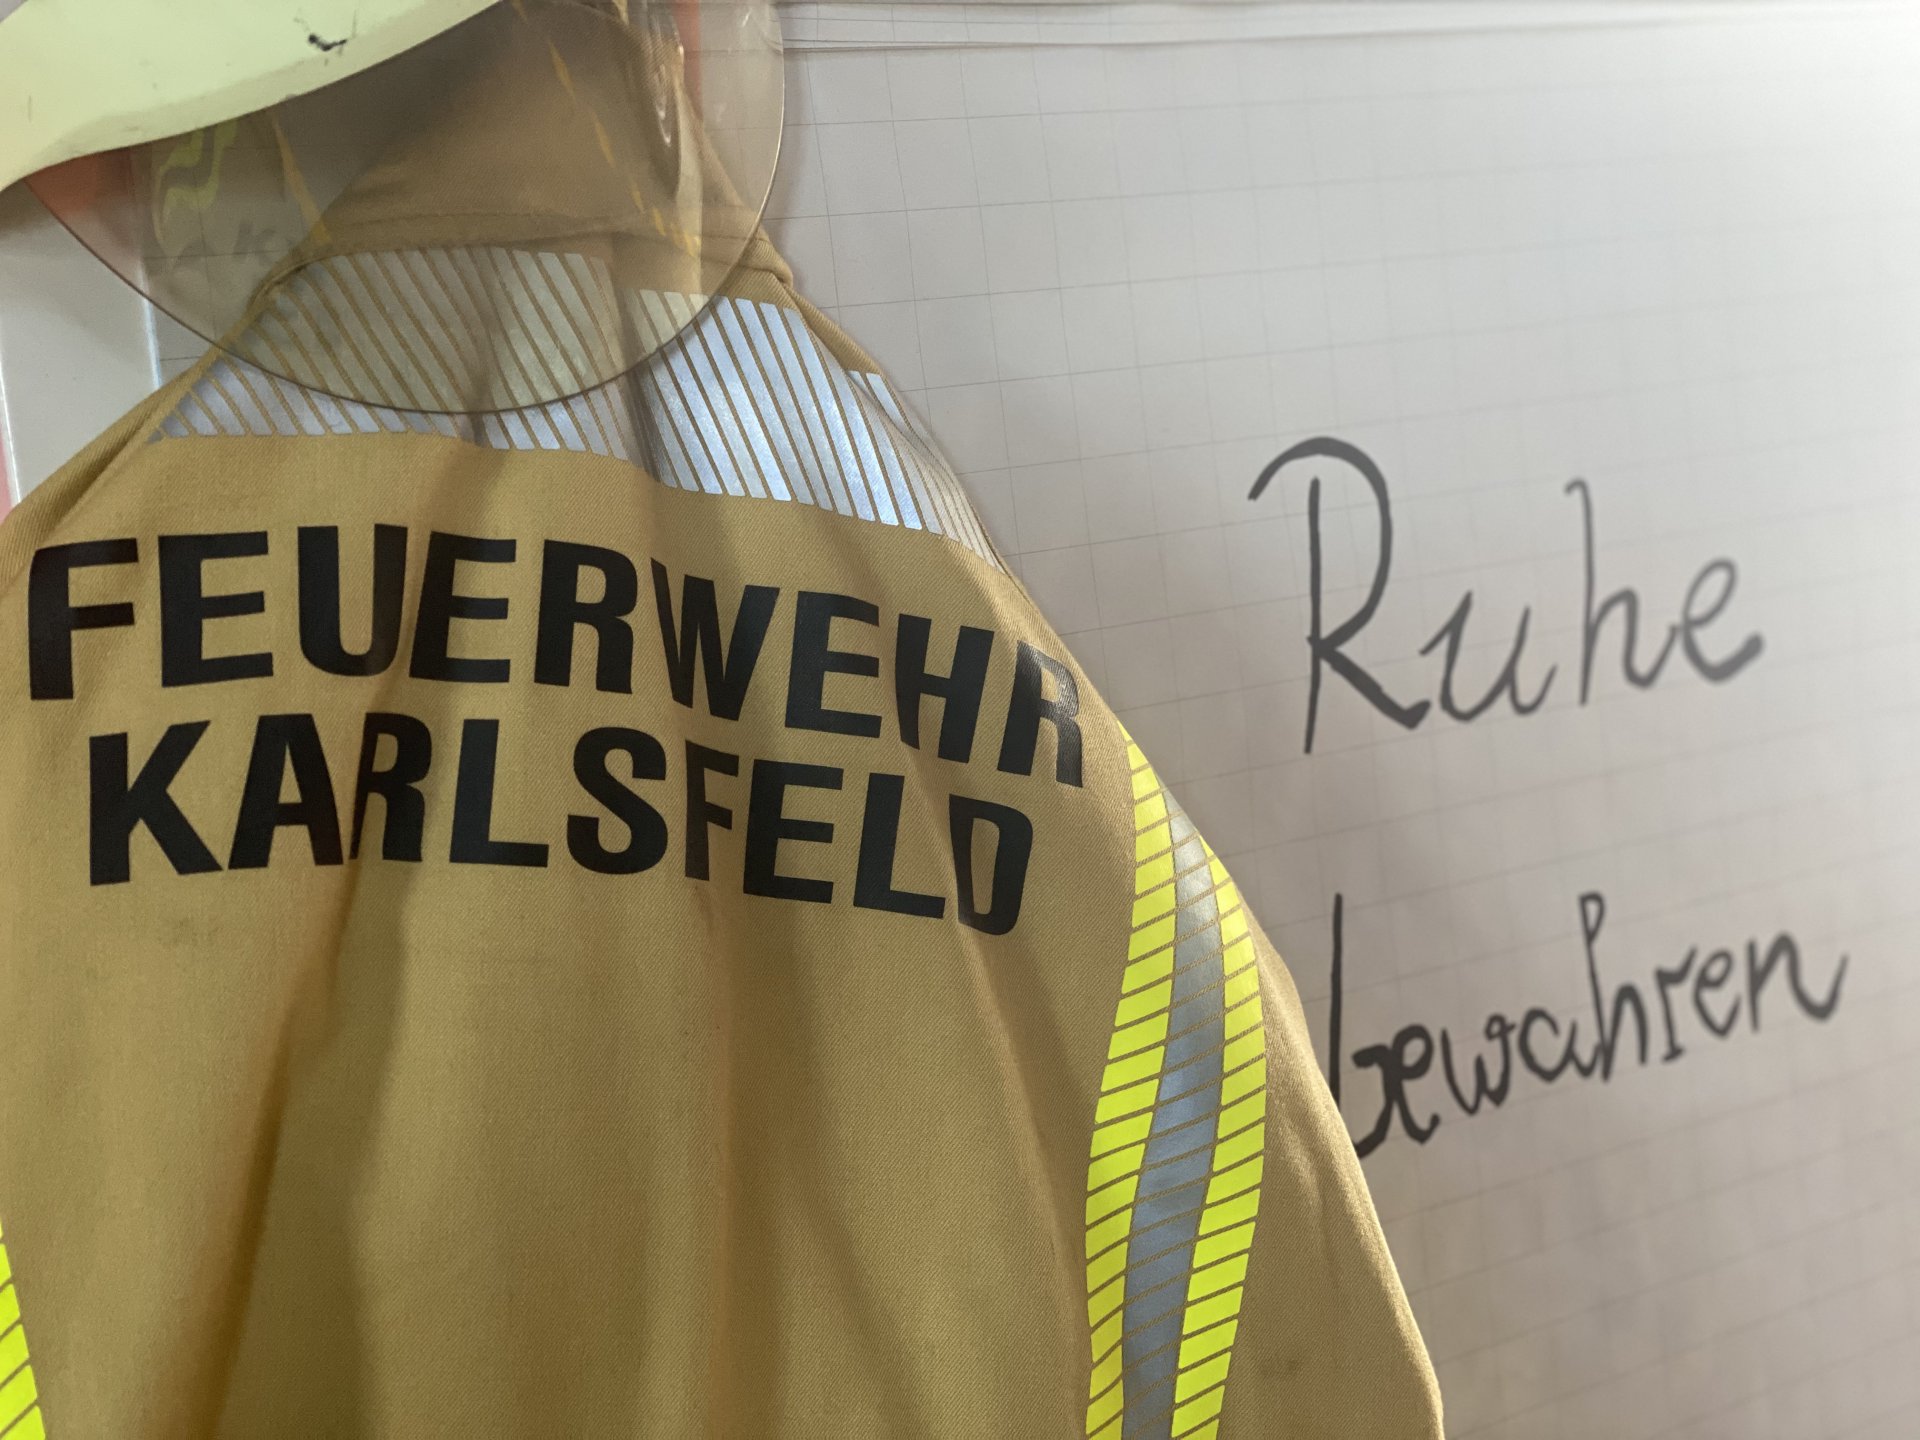 FEUERWEHR
KARLSFELD
Ruhe
bewahren